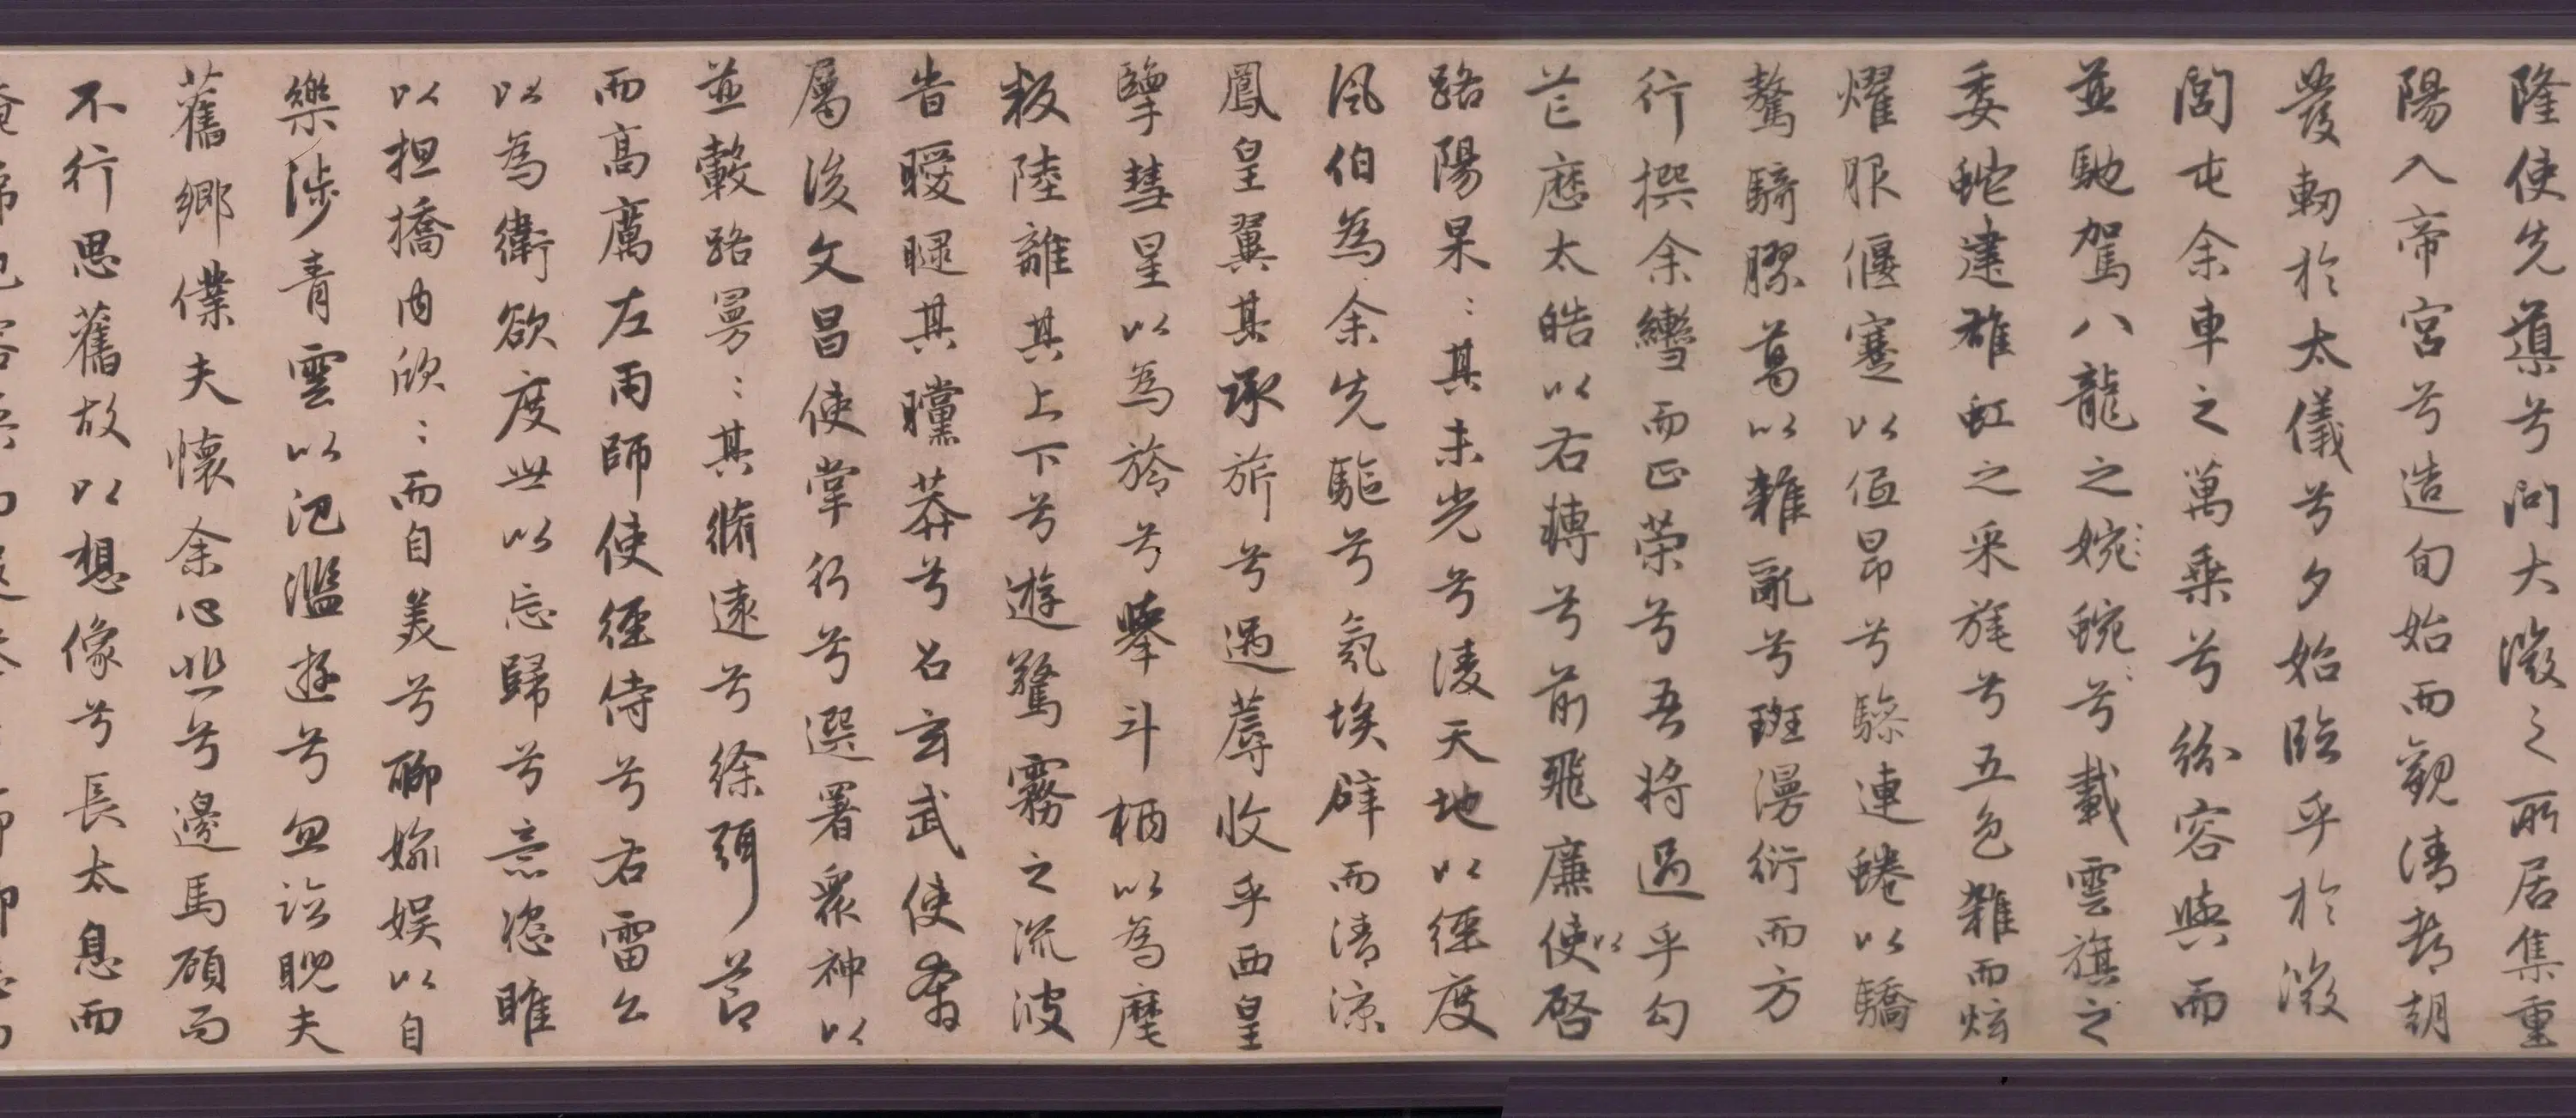 隆使先導兮問大微之所居集重
陽入帝宮兮造旬始而觀清都朝
發軔於太儀兮夕始臨乎於微
閭屯余車之萬乘兮紛容與而
並馳駕八龍之婉蜿兮載雲旗之
委蛇建雄虹之采旄兮五色雜而炫
燿服偃蹇以低昂兮驂連蜷以驕
驁騎膠葛以雜亂兮斑漫衍而方
行撰余轡而正榮兮吾將過乎勾
芒歷太皓以右轉兮前飛廉使以啓
路陽杲〻其未光兮淩天地以徑度
風伯為余先驅兮氛埃辟而清涼
鳳皇翼其承旂兮遇蓐收乎西皇
擥彗星以為旍兮舉斗柄以為麾
叛陸離其上下兮遊驚霧之流波
旹曖曃其曭莽兮召玄武使奔
屬後文昌使掌行兮選署衆神以
並轂路曼〻其脩遠兮徐弭節
而高厲左雨師使徑侍兮右雷公
以為衛欲度世以忘歸兮意恣睢
以担撟內欣〻而自美兮聊媮娛以自
樂涉青雲以汜濫遊兮忽臨睨夫
舊鄉僕夫懷余心悲兮邊馬顧而
不行思舊故以想像兮長太息而